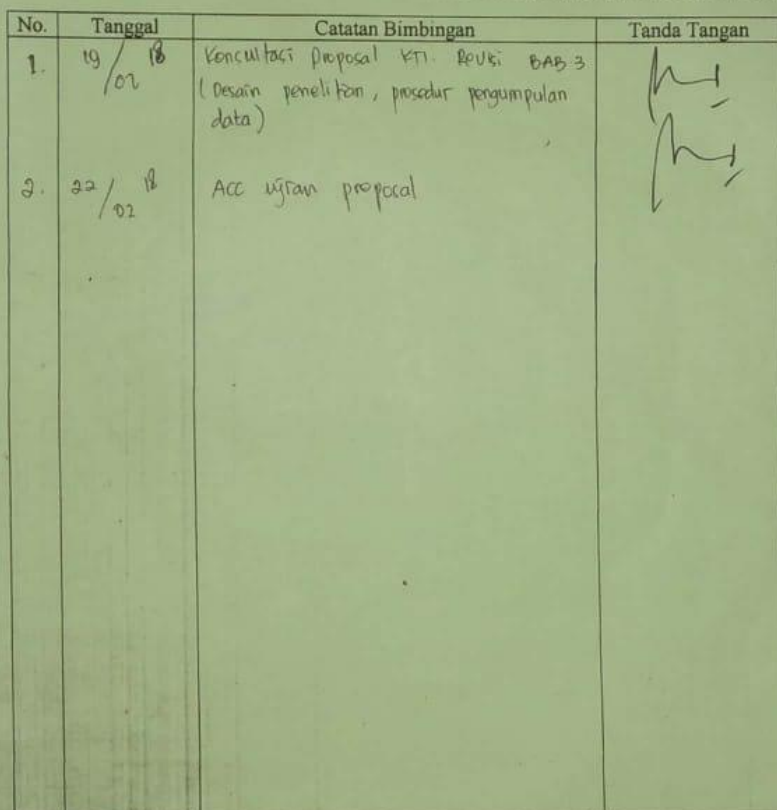 No. Tanggal Catatan Bimbingan Tanda Tangan
1. 19/02 18 Konsultasi proposal KTI. Revisi BAB 3
(Desain penelitian, prosedur pengumpulan
data)
2. 22/02 18 ACC ujian proposal